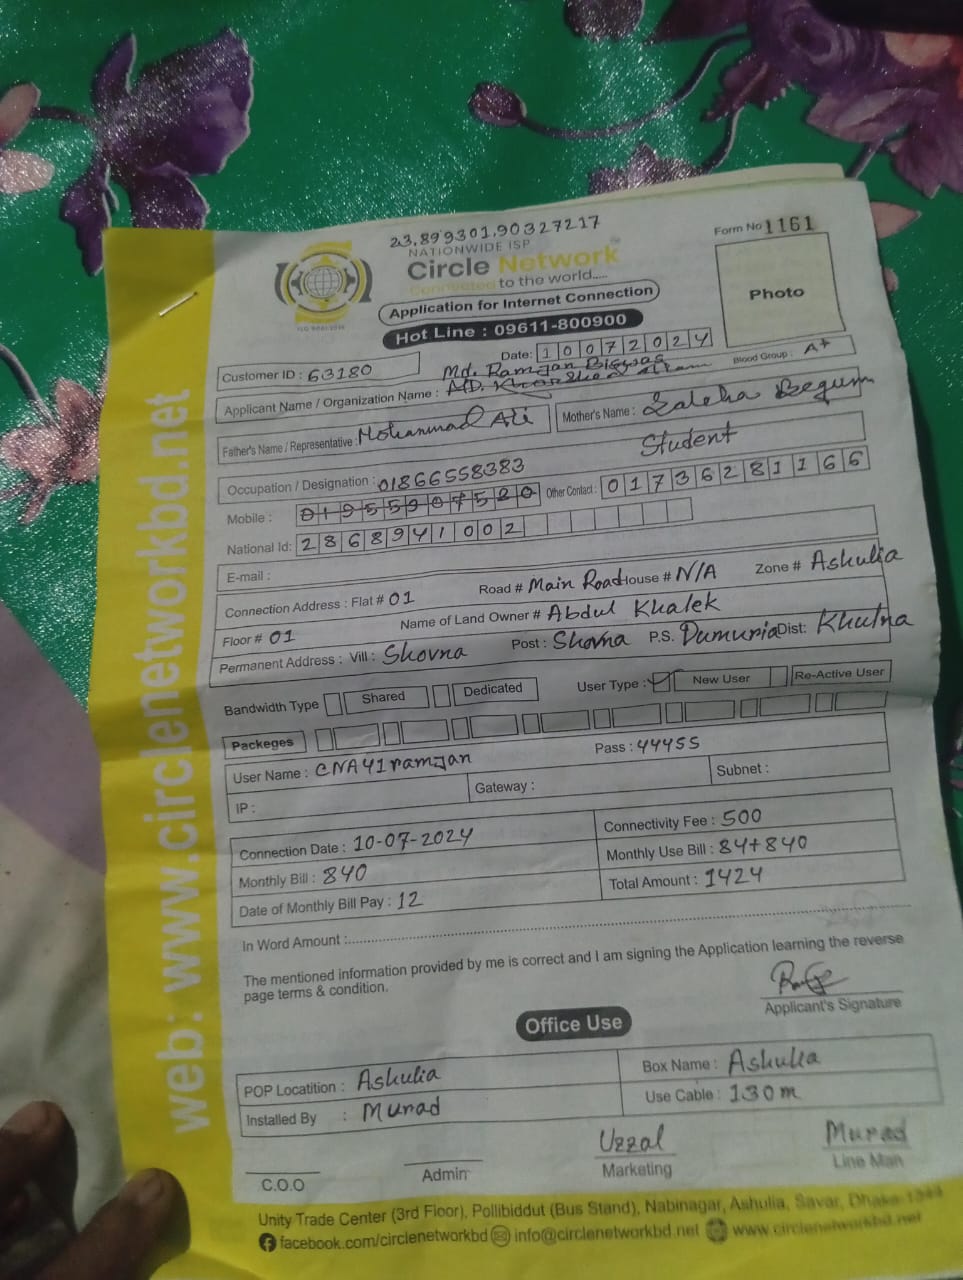 23.899301,90327217
NATIONWIDE ISP
Form No 1161
Circle Network
Connected to the world.....
Application for Internet Connection
Photo
Hot Line : 09611-800900
ISO 9001:2015
Date: 10072024
Customer ID : 63180
Md. Ramzan Biswas
Blood Group : A+
Applicant Name / Organization Name : MD. Khorshed Alam
Father's Name / Representative : Mohammad Ali
Mother's Name : Zaleha Begum
Student
Occupation / Designation : 01866558383
Mobile : 01955907520
Other Contact : 01736281166
National Id: 2868941002
E-mail :
Connection Address : Flat # 01 Road # Main Road House # N/A Zone # Ashulia
Floor # 01 Name of Land Owner # Abdul Khalek
Permanent Address : Vill : Shovna Post : Shovna P.S. Dumuria Dist: Khulna
Bandwidth Type Shared Dedicated User Type : New User Re-Active User
Packeges
User Name : CNA41ramzan Pass : 44455
IP : Gateway : Subnet :
Connection Date : 10-07-2024 Connectivity Fee : 500
Monthly Bill : 840 Monthly Use Bill : 84+840
Date of Monthly Bill Pay : 12 Total Amount : 1424
In Word Amount :
The mentioned information provided by me is correct and I am signing the Application learning the reverse
page terms & condition.
Applicant's Signature
Office Use
POP Locatition : Ashulia Box Name : Ashulia
Installed By : Murad Use Cable : 130m
Uzzal Murad
C.O.O Admin Marketing Line Man
Unity Trade Center (3rd Floor), Pollibiddut (Bus Stand), Nabinagar, Ashulia, Savar, Dhaka 1344
facebook.com/circlenetworkbd info@circlenetworkbd.net www.circlenetworkbd.net
web: www.circlenetworkbd.net